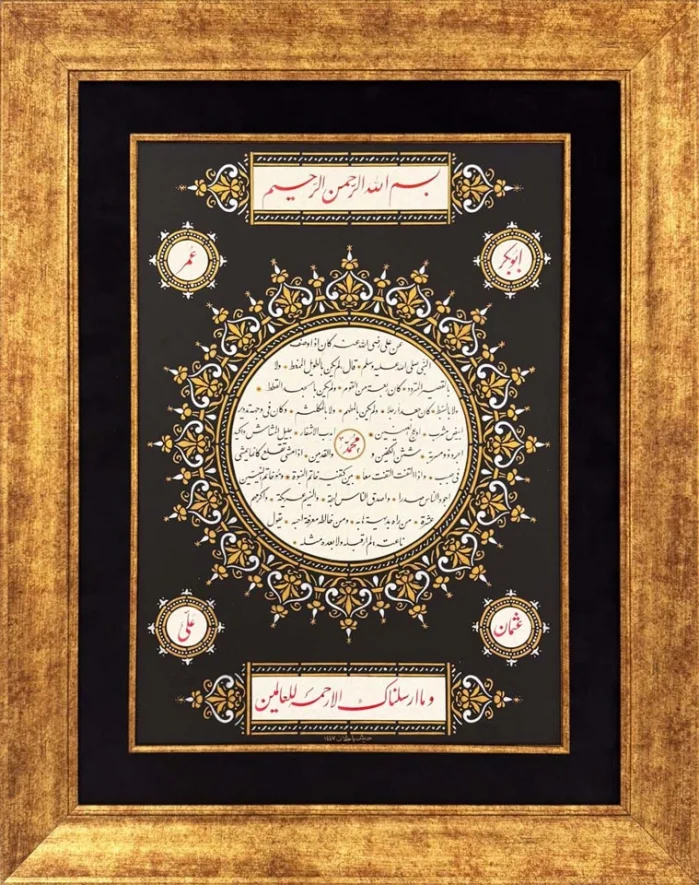 بسم الله الرحمن الرحيم
ابوبكر
عمر
عن علي رضي الله عنه كان اذا وصف
النبي صلى الله عليه وسلم قال لم يكن بالطويل الممغط ولا
بالقصير المتردد كان ربعة من القوم ولم يكن بالجعد القطط
ولا بالسبط كان جعدا رجلا ولم يكن بالمطهم ولا بالمكلثم وكان في وجهه تدوير
ابيض مشرب ادعج العينين اهدب الاشفار جليل المشاش والكتد
اجرد ذو مسربة شثن الكفين والقدمين اذا مشى تقلع كانما يمشي
محمد
في صبب واذا التفت التفت معا بين كتفيه خاتم النبوة وهو خاتم النبيين
اجود الناس صدرا واصدق الناس لهجة والينهم عريكة واكرمهم
عشرة من راه بديهة هابه ومن خالطه معرفة احبه يقول
ناعته لم ار قبله ولا بعده مثله
عثمان
علي
وما ارسلناك الا رحمة للعالمين